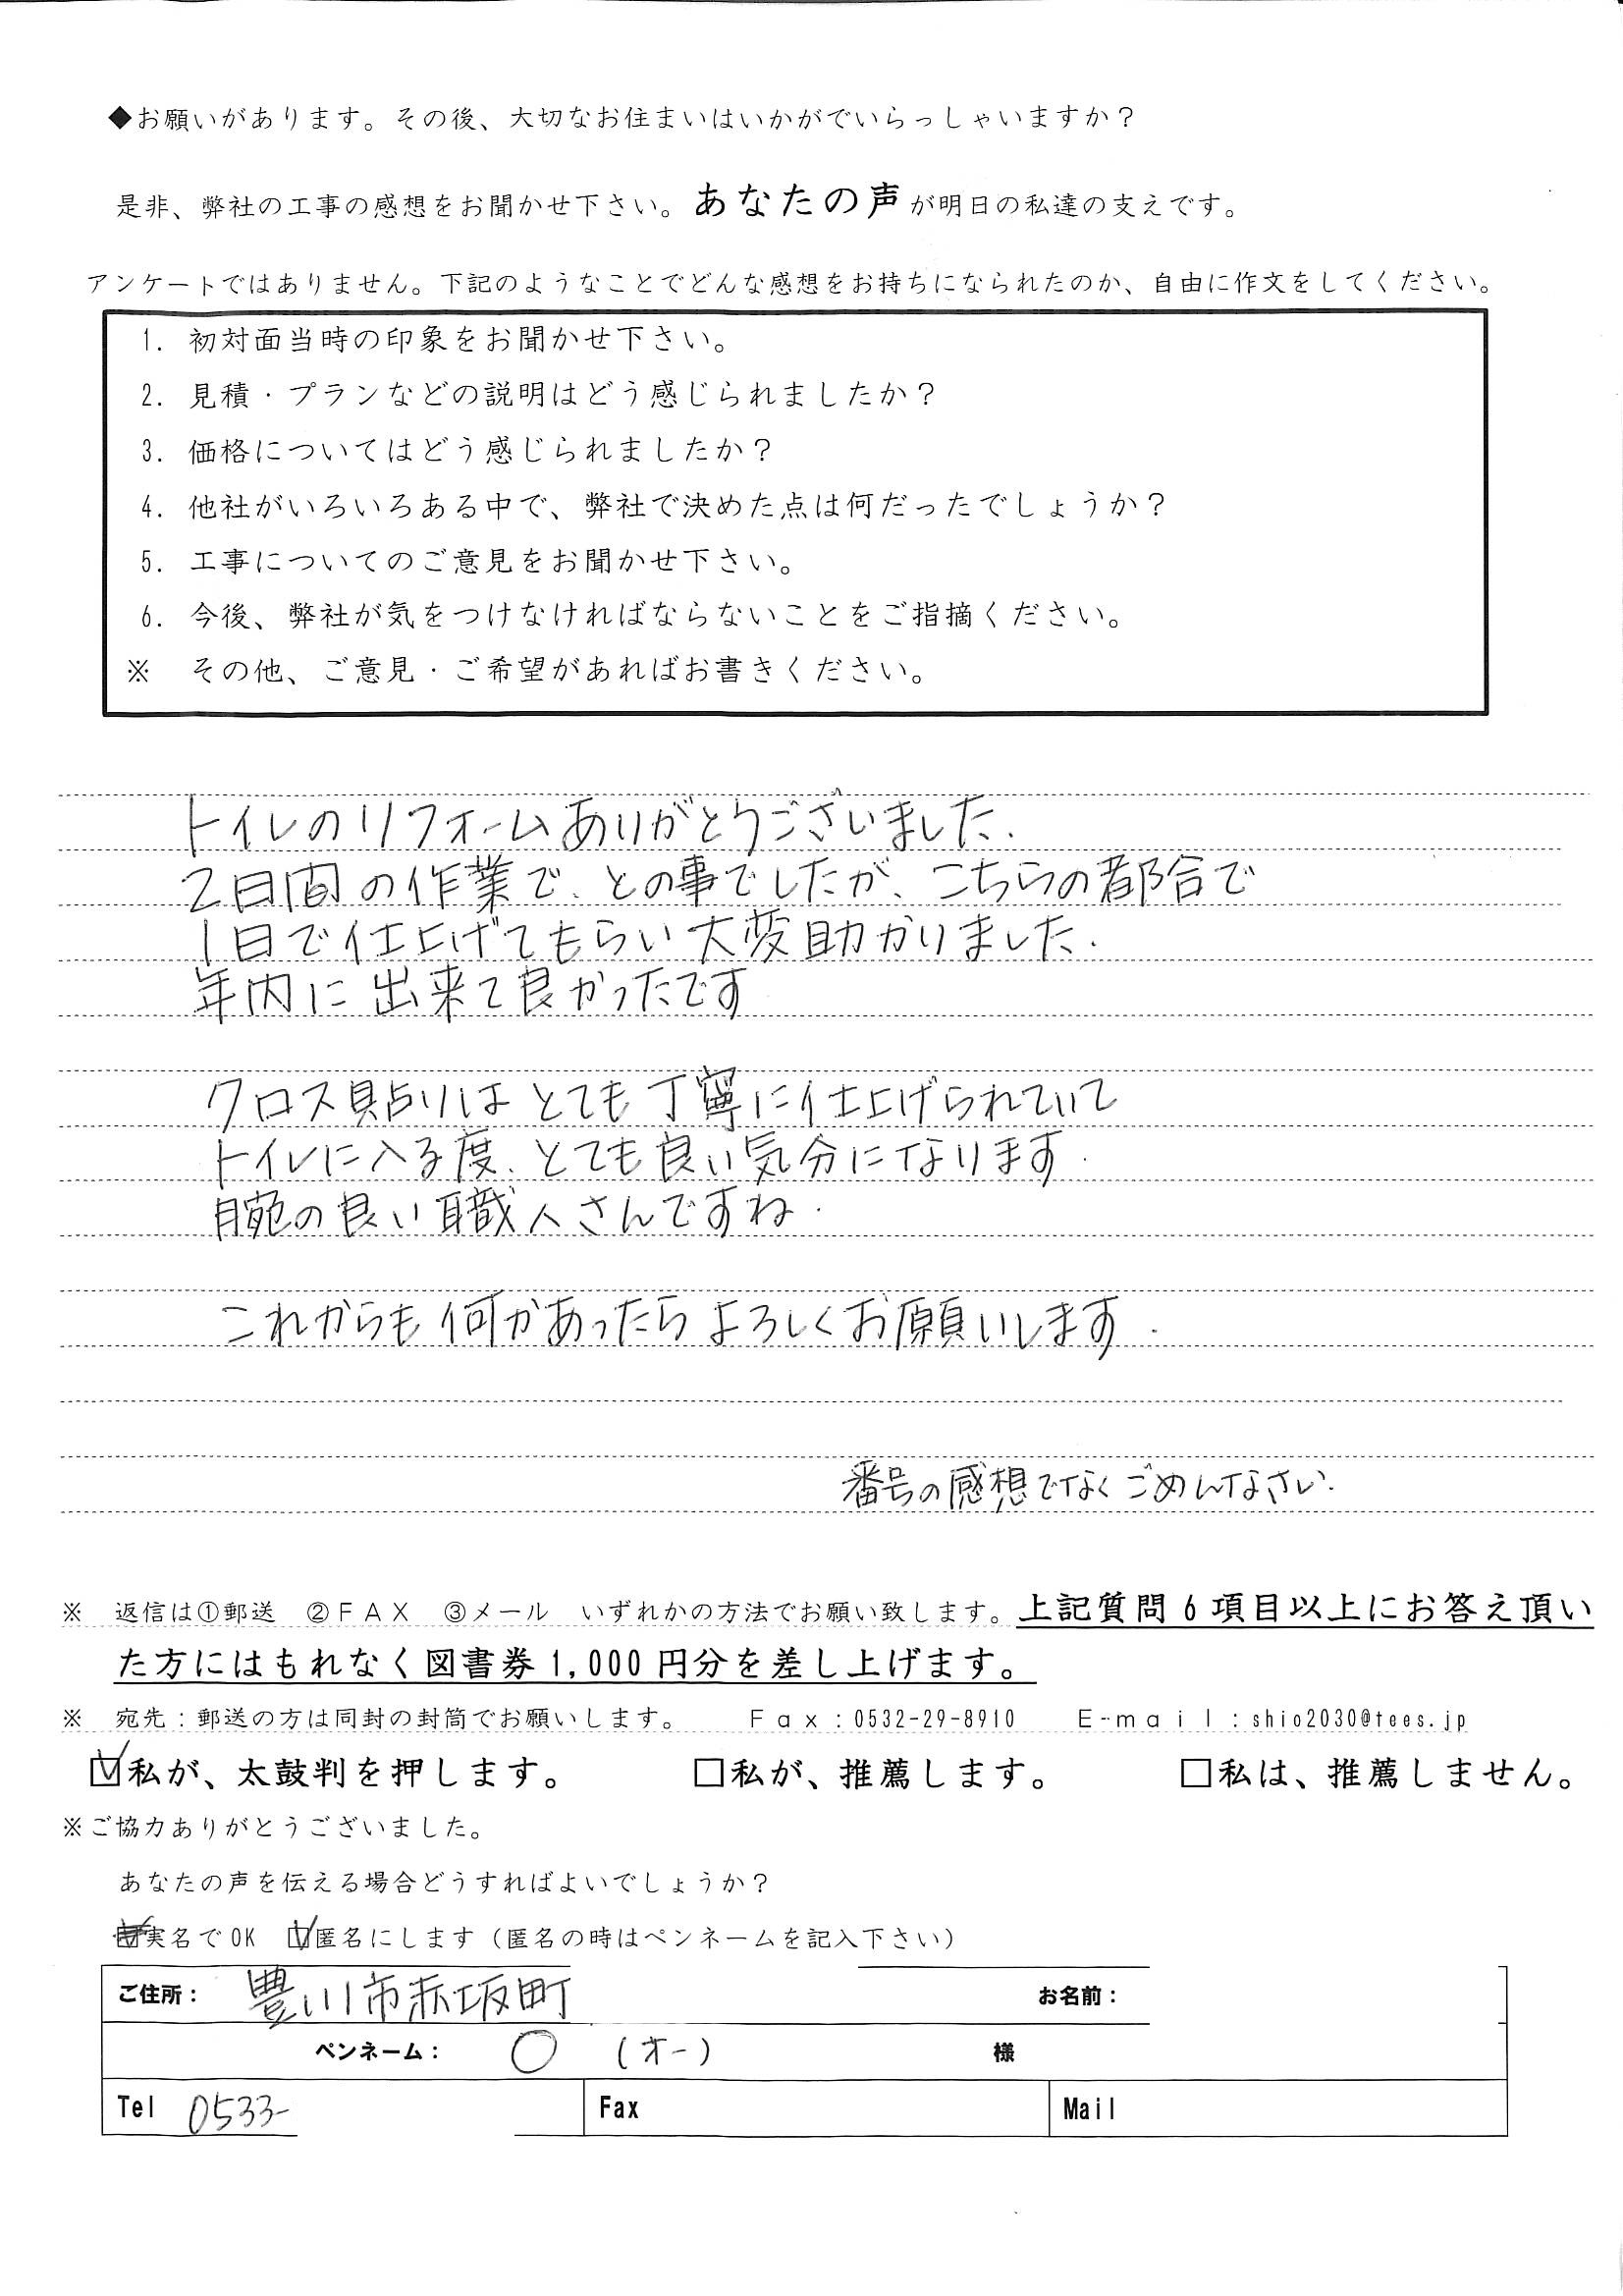 ◆お願いがあります。その後、大切なお住まいはいかがでいらっしゃいますか？
是非、弊社の工事の感想をお聞かせ下さい。あなたの声が明日の私達の支えです。
アンケートではありません。下記のようなことでどんな感想をお持ちになられたのか、自由に作文をしてください。
1. 初対面当時の印象をお聞かせ下さい。
2. 見積・プランなどの説明はどう感じられましたか？
3. 価格についてはどう感じられましたか？
4. 他社がいろいろある中で、弊社で決めた点は何だったでしょうか？
5. 工事についてのご意見をお聞かせ下さい。
6. 今後、弊社が気をつけなければならないことをご指摘ください。
※ その他、ご意見・ご希望があればお書きください。
トイレのリフォームありがとうございました.
2日間の作業で、との事でしたが、こちらの都合で
1日で仕上げてもらい大変助かりました.
年内に出来て良かったです
クロス貼りはとても丁寧に仕上げられていて
トイレに入る度、とても良い気分になります.
腕の良い職人さんですね.
これからも何かあったらよろしくお願いします.
番号の感想でなくごめんなさい.
※ 返信は①郵送 ②ＦＡＸ ③メール いずれかの方法でお願い致します。上記質問6項目以上にお答え頂い
た方にはもれなく図書券1,000円分を差し上げます。
※ 宛先：郵送の方は同封の封筒でお願いします。 Ｆａｘ：0532-29-8910 Ｅ-ｍａｉｌ：shio2030@tees.jp
☑私が、太鼓判を押します。 □私が、推薦します。 □私は、推薦しません。
※ご協力ありがとうございました。
あなたの声を伝える場合どうすればよいでしょうか？
☑実名でOK ☑匿名にします（匿名の時はペンネームを記入下さい）
ご住所： 豊川市赤坂町 お名前：
ペンネーム： ○ (オー) 様
Tel 0533- Fax Mail